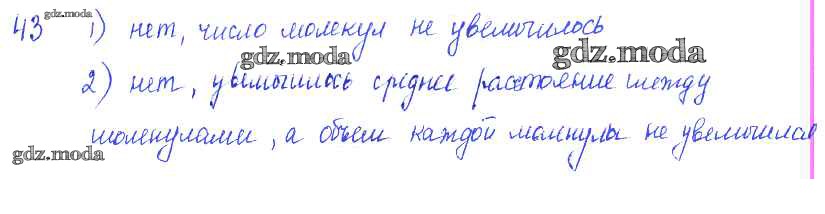 43 gdz.moda 1) нет, число молекул не увеличилось
gdz.moda gdz.moda
2) нет, увеличилось среднее расстояние между
молекулами, а объем каждой молекулы не увеличился
gdz.moda gdz.moda